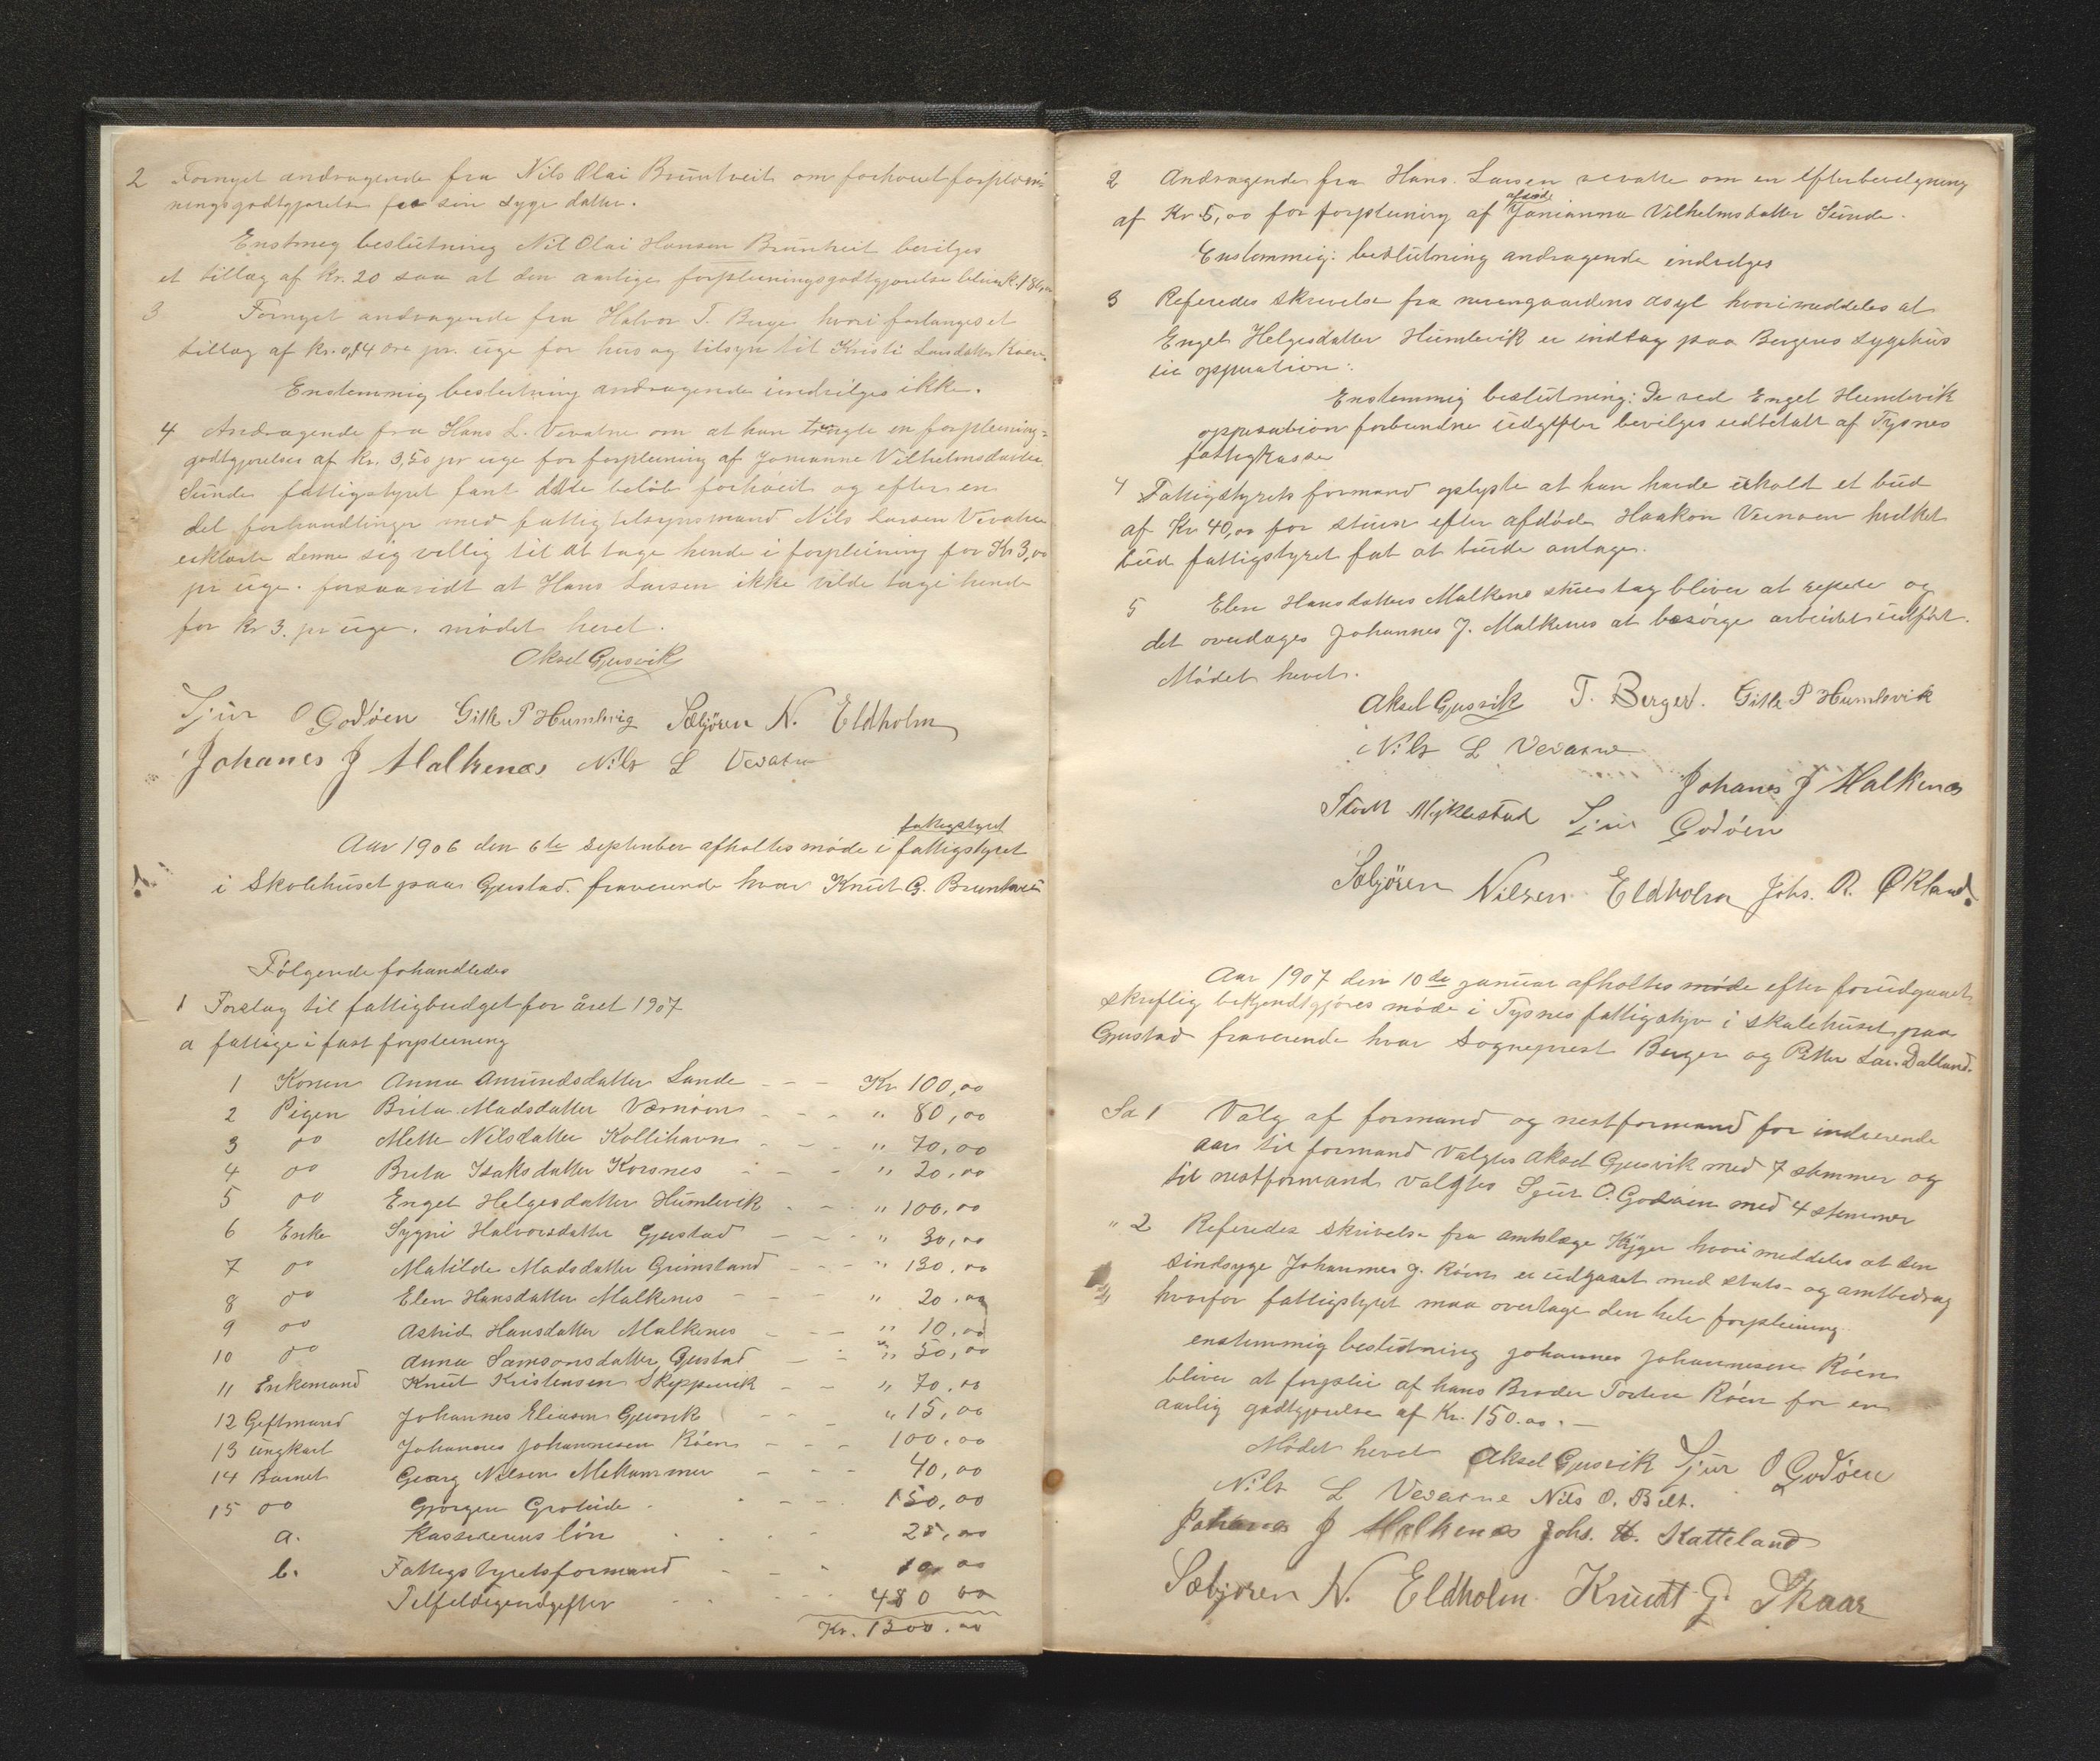 2 Fornyet andragende fra Nils Olai Bruntveit om forhøiet forpleie-
ningsgodtgjørelse for sin syge datter.
Enstmeg beslutning Nil Olai Hansen Bruntveit bevilges
et tillæg af kr. 20 saa at den aarlige forpleiningsgodtgjørelse bliver
3 Fornyet andragende fra Halvor T. Berge hvori forlanges et
tillæg af kr. 0,14 øre pr. uge for hus og tilsyn til Kristi Larsdatter
Enstemmig beslutning andragende indvilges ikke.
4 Andragende fra Hans L. Vevatne om at han tragte en forpleining-
godtgjørelse af kr. 3,50 pr uge for forpleining af Jonianne Vilhelmsdatter
Sunde fattigstyret fant dette beløb forhøit og efter en
del forhandlinger med fattigtilsynsmand Nils Larsen Vevatne
erklærte denne sig villig til at tage hende i forpleining for Kr 3,00
pr uge. forsaavidt at Hans Larsen ikke vilde tage hende
for kr 3. pr uge. mødet hevet.
Aksel Gjersvik
Sjur O Godøen Gitle P Humlevig Sæbjören N. Eldholm
Johanes J Malkenes Nils L Vevatne
fattigstyret
Aar 1906 den 6te September afholtes møde i fattigstyret
i Skolehuset paa Gjerstad. fraverende hvar Knut G. Bruntveit
Følgende fohandledes
1 Forslag til fattigbudget for året 1907
a fattige i fast forpleining
1 Konen Anna Amundsdatter Sande - - - Kr 100,00
2 Pigen Brita Madsdatter Værnøen - - - " 80,00
3 do Mette Nilsdatter Kollihavn - - - " 70,00
4 do Brita Isaksdatter Korsnes - - - " 20,00
5 do Engel Helgesdatter Humlevik - - - " 100,00
6 Enke Sygni Halvorsdatter Gjerstad - - - " 30,00
7 do Matilde Madsdatter Grimstand - - - " 130,00
8 do Elen Hansdatter Malkenes - - - " 20,00
9 do Astrid Hansdatter Malkenes - - - " 10,00
10 do Anna Samsonsdatter Gjerstad - - " 50,00
11 Enkemand Knut Kristensen Skeppevik - - " 70,00
12 Giftmand Johannes Eliasen Gjersvik - - " 15,00
13 ungkarl Johannes Johannesen Röen - - - 100,00
14 Barnet Georg Nilsen Mekammer - - - 40,00
15 do Gjørgen Groteide - - - 150,00
a. Kassererens løn 25,00
b. Fattigstyretsformand - - - 10,00
Tilfeldigeudgifter 480 00
Kr. 1300.00
2 Andragende fra Hans Larsen vevatne om en Efterbevilgning
afdøde
af Kr 5,00 for forpleining af Janianna Vilhelmsdatter Sunde.
Enstemmig: beslutning andragende indvilges
3 Referedes skrivelse fra neevengaardens asyl hvori meddeles at
Engel Helgesdatter Humlevik er indtag paa Bergens sygehus
til opperation:
Enstemmig beslutning: De ved Engel Humlevik
opperation forbundne udgifter bevilges udbetalt af Tysnes
fattigkasse
4 Fattigstyrets formand oplyste at han havde erholdt et bud
af Kr 40,00 for stuen efter afdøde Haakon Værnøen hvilket
bud fattigstyret fat at burde antages.
5 Elen Hansdatters Malkenes stuestag bliver at repeder og
det overdages Johannes J. Malkenes at besørge arbeidet udført.
Mødet hevet.
Aksel Gjersvik T. Berger. Gitle P Humlevik
Nils L Vevatne
Johanes J Malkenes
Myklestad Sjur Godøen
Sæbjören Nilsen Eldholm Johs. R. Økland.
Aar 1907 den 10de januar afholtes møde efter forudgaaet
skriftlig bekjendtgjøres møde i Tysnes fattigstyre i skolehuset paa
Gjerstad fraverende hvar Sogneprest Berger og Petter Lar. Dalland.
Sa 1 Valg af formand og nestformand for indeverende
aar til formand valgtes Aksel Gjersvik med 7 stemmer og
til nestformand valgtes Sjur O. Godøen med 4 stemmer
" 2 Referedes skrivelse fra amtslæge Kyger hvori meddeles at den
sindsyge Johannes J. Röen er udgaaet med stats- og amtbedrag
hvorfor fattigstyret maa overtage den hele forpleining.
enstemmig beslutning Johannes Johannesen Röen
bliver at forpleie af hans Broder Torten Röen for en
aarlig godtgjørelse af Kr. 150.00. -
Mødet hevet Aksel Gjersvik Sjur O Godøen
Nils L Vevatne Nils O. Belt.
Johanes J Malkenes Johs. H. Katteland
Sæbjören N. Eldholm Knudt G. Skaar